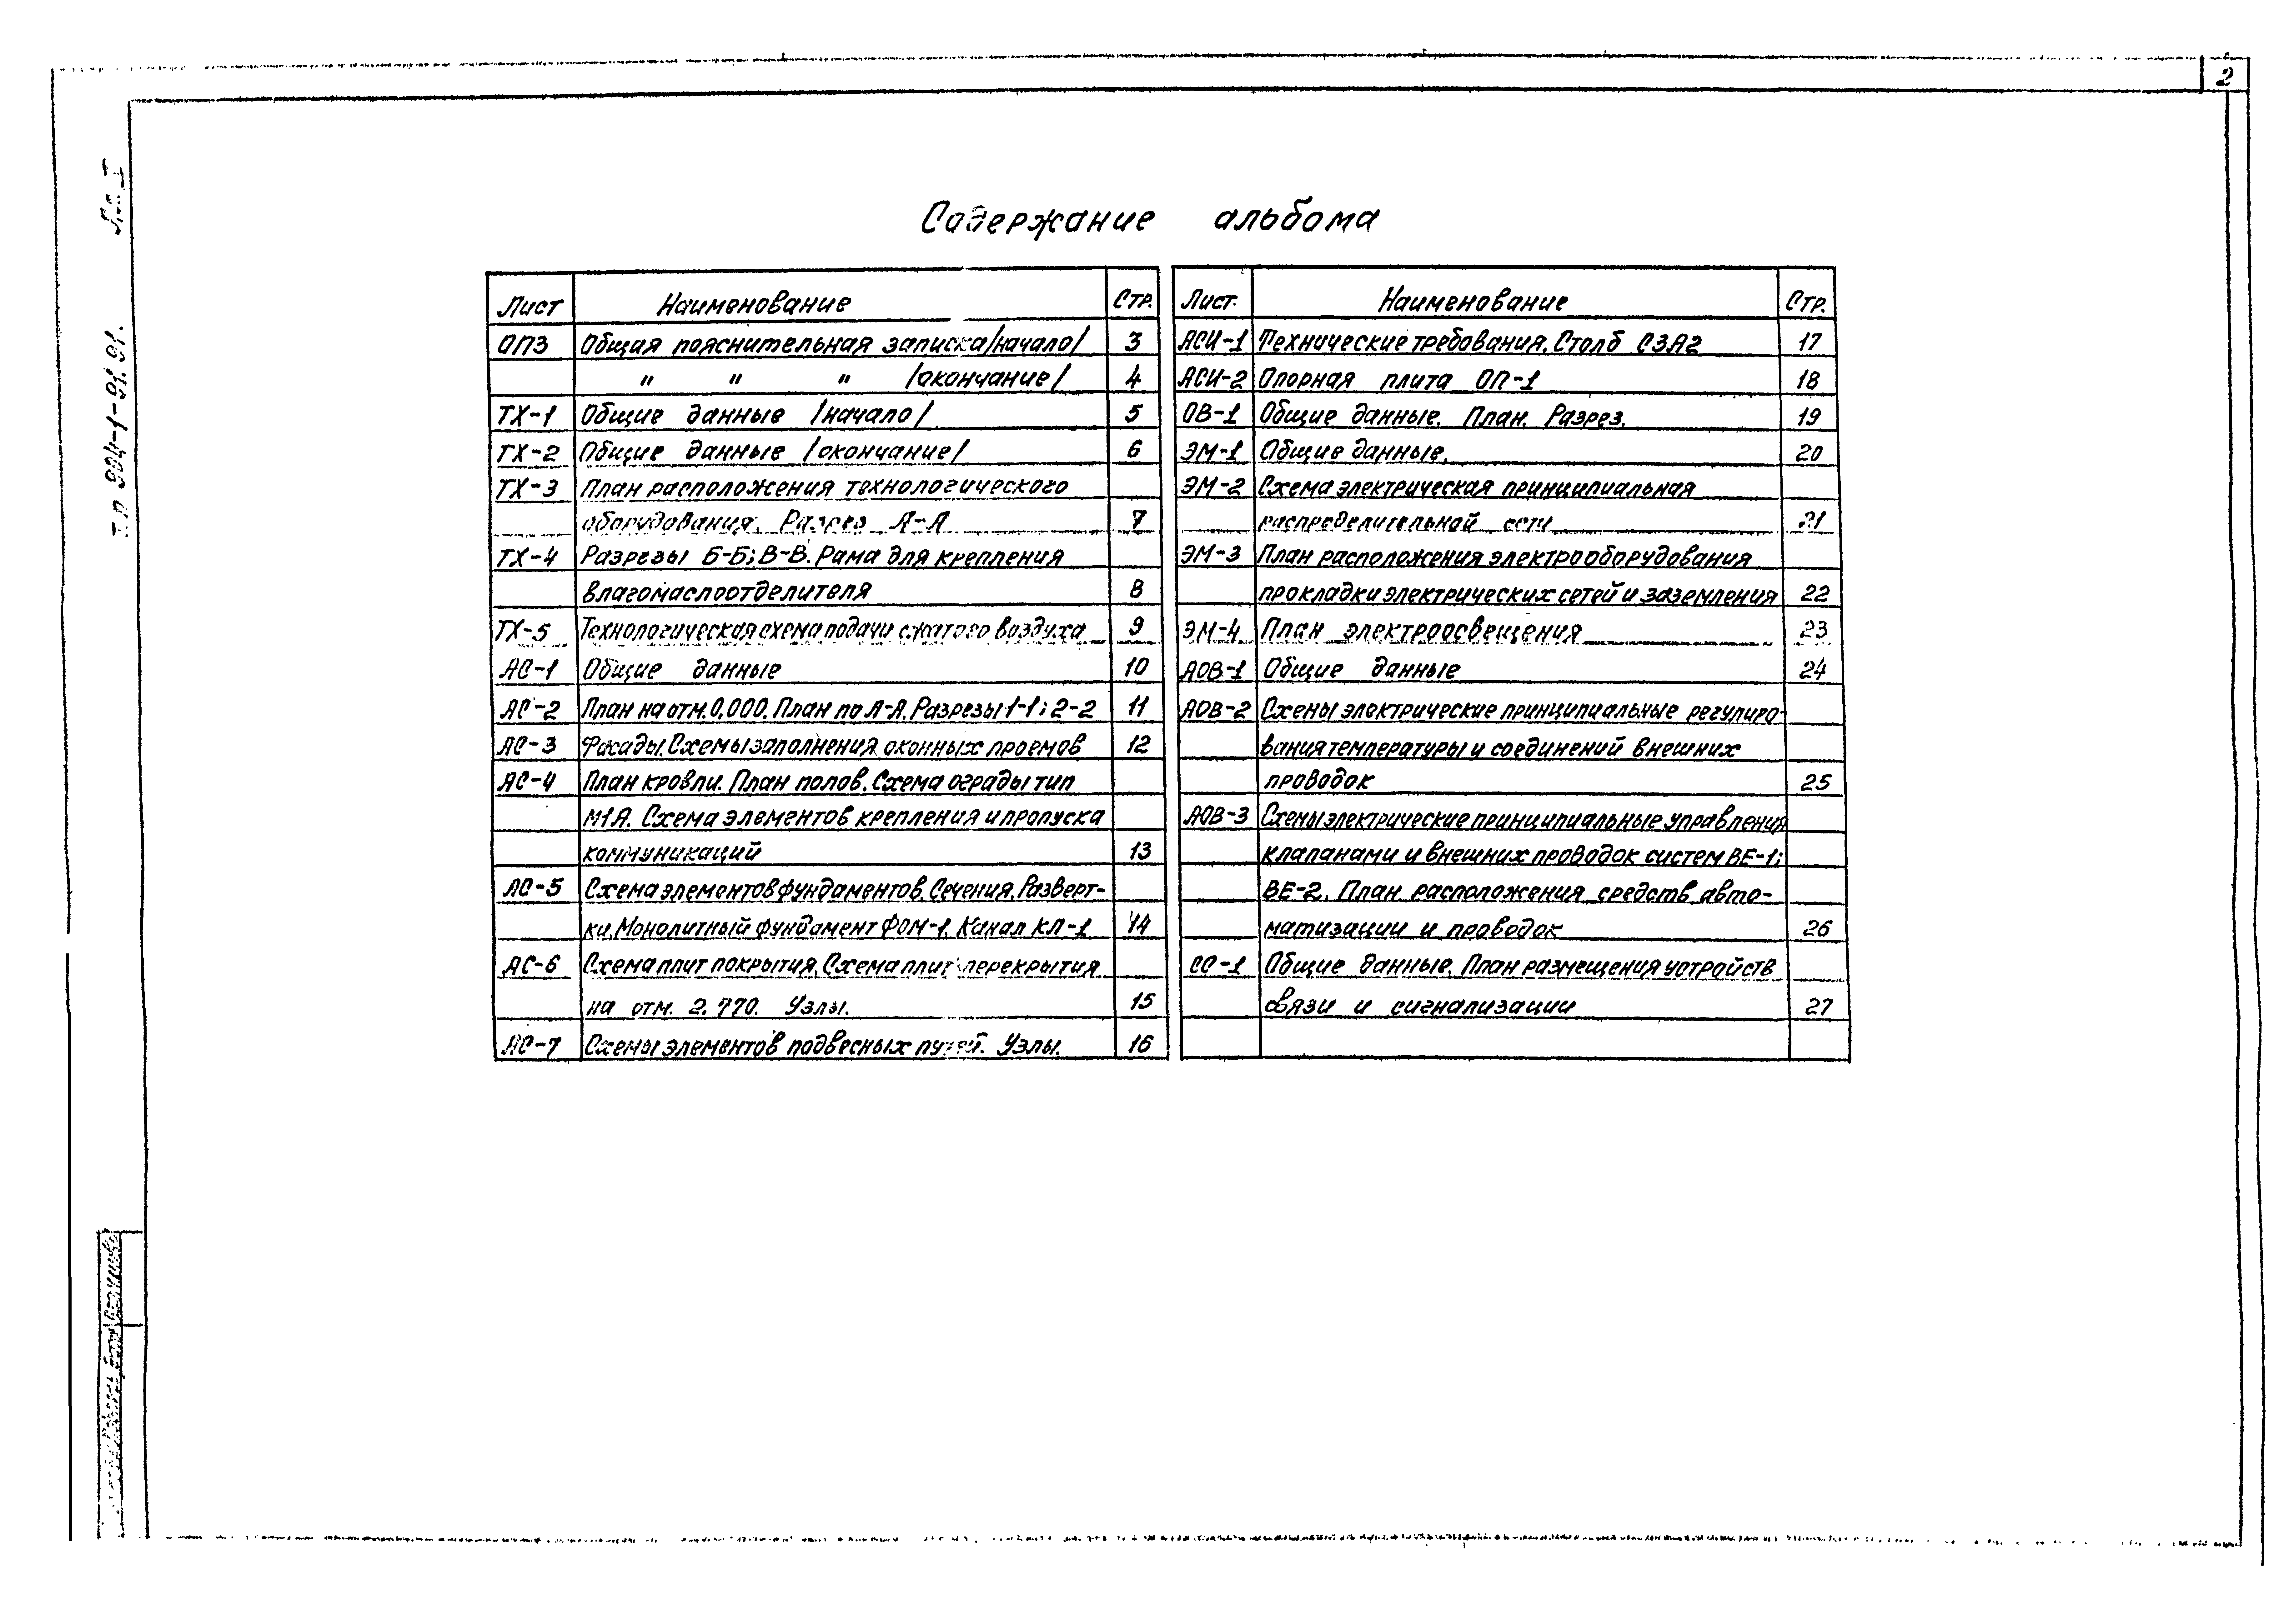 2
Т.П 904-1-91.91.
Содержание альбома
Лист Наименование Стр.
ОПЗ Общая пояснительная записка /начало/ 3
" " " /окончание/ 4
ТХ-1 Общие данные /начало/ 5
ТХ-2 Общие данные /окончание/ 6
ТХ-3 План расположения технологического
оборудования. Разрез А-А 7
ТХ-4 Разрезы Б-Б; В-В. Рама для крепления
влагомаслоотделителя 8
ТХ-5 Технологическая схема подачи сжатого воздуха 9
АС-1 Общие данные 10
АС-2 План на отм. 0,000. План по А-А. Разрезы 1-1; 2-2 11
АС-3 Фасады. Схемы заполнения оконных проемов 12
АС-4 План кровли. План полов. Схема ограды тип
М1А. Схема элементов крепления и пропуска
коммуникаций 13
АС-5 Схема элементов фундаментов. Сечения. Разверт-
ки. Монолитный фундамент ФОМ-1. Канал КЛ-1 14
АС-6 Схема плит покрытия. Схема плит перекрытия
на отм. 2.770. Узлы. 15
АС-7 Схемы элементов подвесных путей. Узлы. 16
Лист. Наименование Стр.
АСИ-1 Технические требования. Столб СЗА2 17
АСИ-2 Опорная плита ОП-1 18
ОВ-1 Общие данные. План. Разрез. 19
ЭМ-1 Общие данные. 20
ЭМ-2 Схема электрическая принципиальная
распределительной сети 21
ЭМ-3 План расположения электрооборудования
прокладки электрических сетей и заземления 22
ЭМ-4 План электроосвещения 23
АОВ-1 Общие данные 24
АОВ-2 Схемы электрические принципиальные регулиро-
вания температуры и соединений внешних
проводок 25
АОВ-3 Схемы электрические принципиальные управления
клапанами и внешних проводок систем ВЕ-1;
ВЕ-2. План расположения средств авто-
матизации и проводок 26
СС-1 Общие данные. План размещения устройств
связи и сигнализации 27